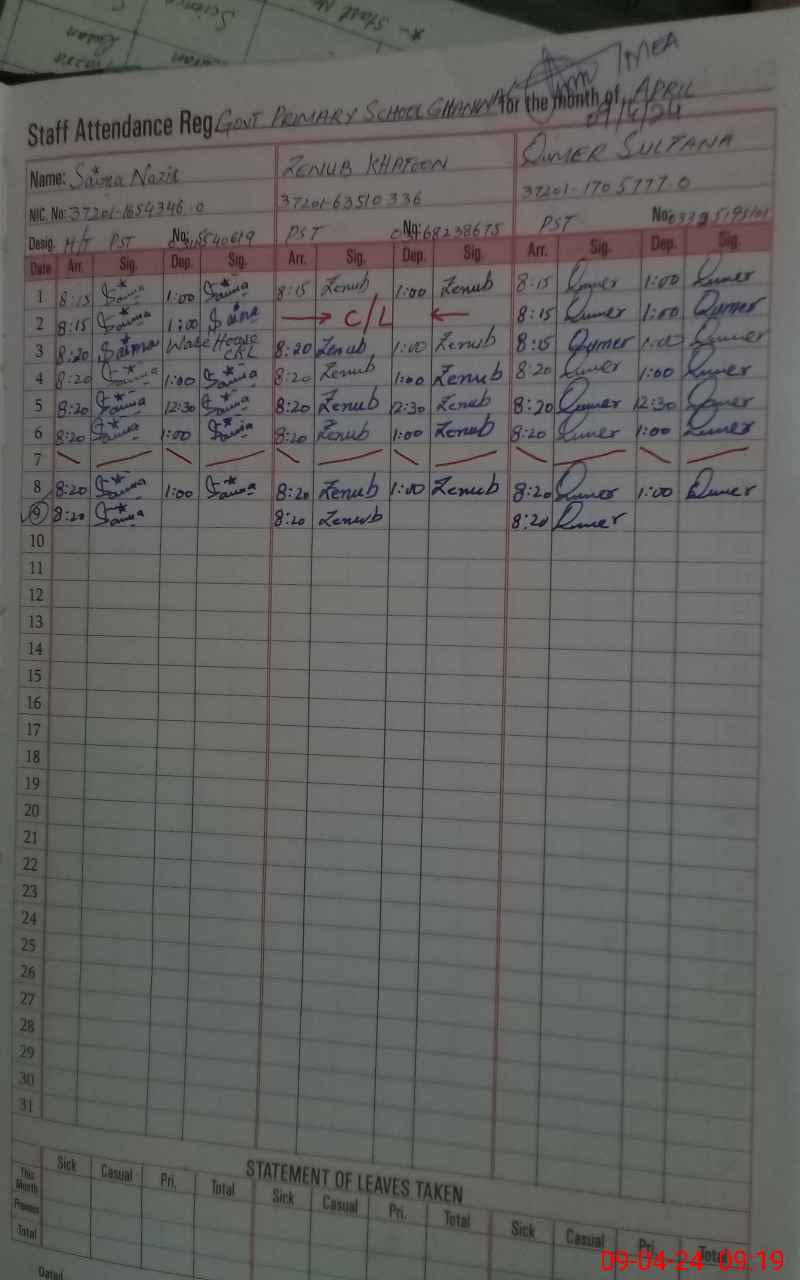 MEA
Staff Attendance Reg GOVT PRIMARY SCHOOL for the month of APRIL
Name: Saima Nazir ZENUB KHATOON QUMER SULTANA
NIC. No: 37201-1654346-0 37201-63510336 37201-1705777 0
Desig. H/T PST No: PST No: 68238675 PST No:
Date Arr. Sig. Dep. Sig. Arr. Sig. Dep. Sig. Arr. Sig. Dep. Sig.
1 8:15 Saima 1:00 Saima 8:15 Zenub 1:00 Zenub 8:15 Qumer 1:00 Qumer
2 8:15 Saima 1:00 Saima → C/L ← 8:15 Qumer 1:00 Qumer
3 8:20 Saima 8:20 Zenub 1:00 Zenub 8:15 Qumer 1:00 Qumer
4 8:20 Saima 1:00 Saima 8:20 Zenub 1:00 Zenub 8:20 Qumer 1:00 Qumer
5 8:20 Saima 12:30 Saima 8:20 Zenub 12:30 Zenub 8:20 Qumer 12:30 Qumer
6 8:20 Saima 1:00 Saima 8:20 Zenub 1:00 Zenub 8:20 Qumer 1:00 Qumer
7
8 8:20 Saima 1:00 Saima 8:20 Zenub 1:00 Zenub 8:20 Qumer 1:00 Qumer
9 8:20 Saima 8:20 Zenub 8:20 Qumer
10
11
12
13
14
15
16
17
18
19
20
21
22
23
24
25
26
27
28
29
30
31
STATEMENT OF LEAVES TAKEN
Sick Casual Pri. Total Sick Casual Pri. Total Sick Casual Pri. Total
This Month
Previous
Total
Dated
09-04-24 09:19